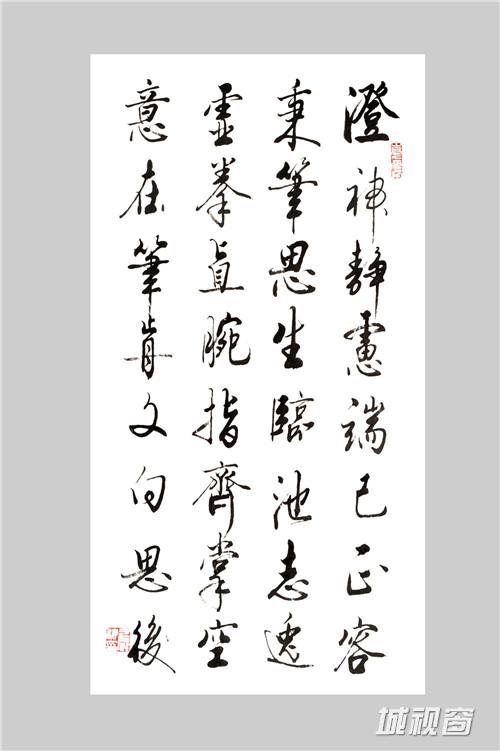 澄神静慮端己正容
秉筆思生臨池志逸
虚拳直腕指齊掌空
意在筆前文向思後
城视窗